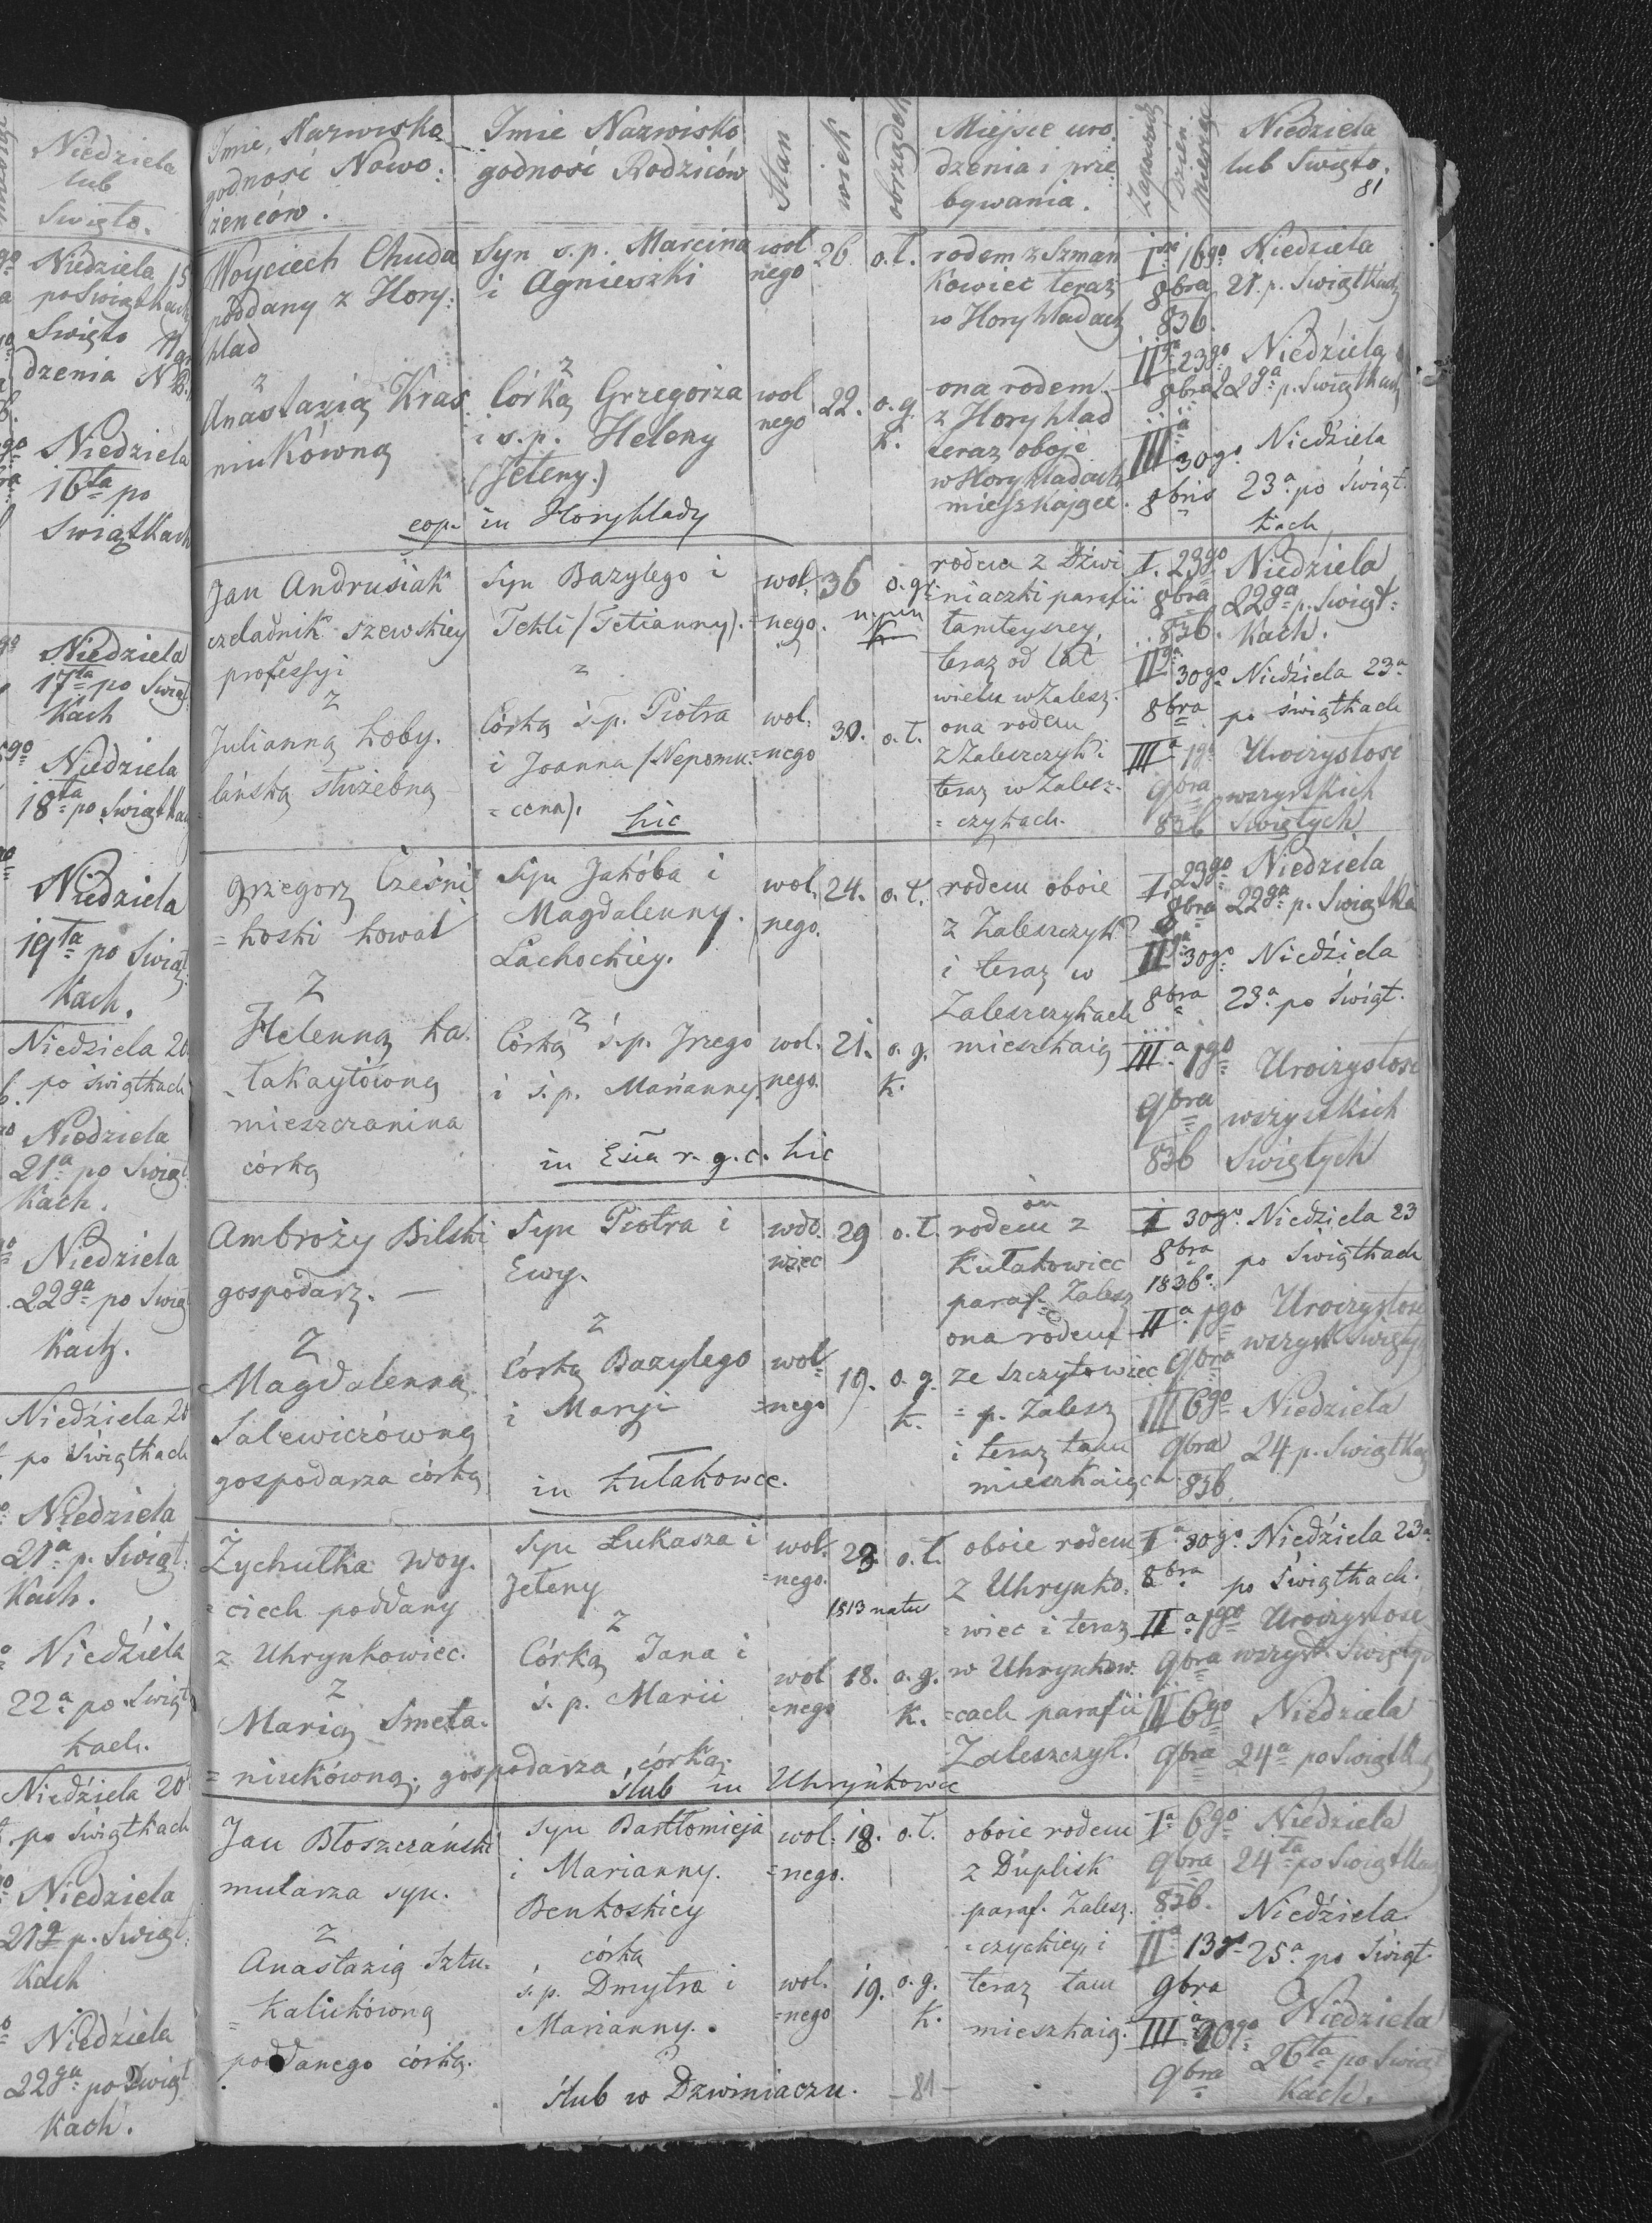 Niedziela
lub
Swięto.
Niedziela 15
po Swiątkach
Swięto
dzenia N
Niedziela
16ta po
Swiątkach
Niedziela
17ta po Swiąt
kach
Niedziela
18ta po Swiątkach
Niedziela
19ta po Swiąt
kach.
Niedziela 20
po swiątkach
Niedziela
21a po Swiąt
kach.
Niedziela
22ga po Swiąt
kach.
Niedziela 20
po Swiątkach
Niedziela
21a p. Swiąt:
kach.
Niedziela
22a po Swiąt
kach.
Niedziela 20
po Swiątkach
Niedziela
21a p. Swiąt
kach
Niedziela
22ga po Swiąt
kach.
Imie, Nazwisko
godność Nowo:
żenców.
Imie Nazwisko
godność Rodziców
Stan
wiek
obrządek
Miejsce uro
dzenia i prze
bywania.
Zapowiedź
Dzień
Miesiąc
Niedziela
lub Swięto.
81
Woyciech Chuda
poddany z Hory:
hlad
z
Anastazią Kras
niukówną
Syn s.p. Marcina
i Agnieszki
z
Córką Grzegorza
i s.p. Heleny
(Jeleny.)
cop. in Horyhlady
wol
nego
26.
o. ł.
wol
nego
22.
o. g.
k.
rodem z Szman
kowiec teraz
w Horyhladach
ona rodem
z Horyhlad
teraz oboje
w Horyhladach
mieszkające.
I 16go
8bra
836.
II 23go
8bra
III
30go
8bris
Niedziela
21. p. Swiątkach
Niedziela
22ga p. Swiątkach
Niedziela
23a po Swiąt
kach
Jan Andrusiak
czeladnik szewskiey
professyi
z
Julianną Łoby.
lańską służebną
Syn Bazylego i
Tekli (Tetianny).
z
Córką s.p. Piotra
i Joanna (Nepomu:
=cena).
hic
wol:
=nego.
36
o. gr.
wol:
=nego
30.
o. ł.
rodem z Dźwi
niaczki parafii
tamteyszey,
teraz od lat
wielu w Zalesz.
ona rodem
z Zaleszczyk:
teraz w Zalesz-
=czykach.
I. 23go
8bra
836.
II
30go
8bra
III a 1go
9bra
836
Niedziela
22ga p. Swiąt:
kach.
Niedziela 23a
po swiątkach
Uroczystość
wszystkich
Swiętych
Grzegorz Cześni
=koski kowal
z
Helenną Ka.
łakayłówną
mieszczanina
córką
Syn Jakóba i
Magdalenny.
Łachockiey.
z
Córką s.p. Jrzego
i s.p. Marianny.
in Esia r. g. c. hic
wol.
nego.
24.
o. ł.
wol.
nego.
21.
o. g.
k.
rodem oboie
z Zaleszczyk
i teraz w
Zaleszczykach
mieszkaią
I. 23go
8bra
II 30go
8bra
III a 1go
9bra
836
Niedziela
22ga p. Swiątka
Niedziela
23a po Swiąt.
Uroczystość
wszystkich
Swiętych
Ambroży Bilski
gospodarz. —
z
Magdalenną
Salewiczówną
gospodarza córką
Syn Piotra i
Ewy.
z
Córką Bazylego
i Maryi
in Kułakowce.
wdo.
wiec
29
o. ł.
wol=
=nego
19.
o. g.
k.
on
rodem z
Kułakowiec
paraf. Zalesz
ona rodem
ze Szczytowiec
= p. Zalesz
i teraz tam
mieszkaiąca.
I 30go.
8bra
1836.
II a 1go
9bra
III 6go
9bra
836
Niedziela 23
po Swiątkach
Uroczystość
wszyst Swięty
Niedziela
24 p. Swiątkach
Zychulka Woy.
=ciech poddany
z Uhrynkowiec.
z
Marią Smeta.
=niukówną; gospodarza córką.
Syn Łukasza i
Jeleny
z
Córką Jana i
s. p. Marii
ślub in Uhrynkowce
wol.
=nego.
23
o. ł.
1813 natus
wol
=nego
18.
o. g.
k.
oboie rodem
z Uhrynko.
=wiec i teraz
w Uhrynkow.
=cach parafii
Zaleszczyk.
I a 30go.
8bra
II a 1go
9bra
III 6go
9bra
Niedziela 23a
po Swiątkach.
Uroczystość
wszyst. Swiętych
Niedziela
24a po Swiątkach
Jan Błoszczański
mularza syn.
z
Anastazią Sztu.
=kalukówną
poddanego córką.
Syn Bartłomieja
i Marianny.
Benkoskiey
córką
s. p. Dmytra i
Marianny.
ślub w Dzwiniaczu.
wol:
=nego.
18.
o. ł.
wol.
=nego
19.
o. g.
k.
oboie rodem
z Duplisk
paraf. Zalesz.
=czyckiey, i
teraz tam
mieszkaią.
I a 6go
9bra
836.
II a 13go
9bra
III a 20go
9bra
Niedziela
24ta po Swiątkach
Niedziela
25a po Swiąt.
Niedziela
26ta po Swiąt
kach.
- 81 -